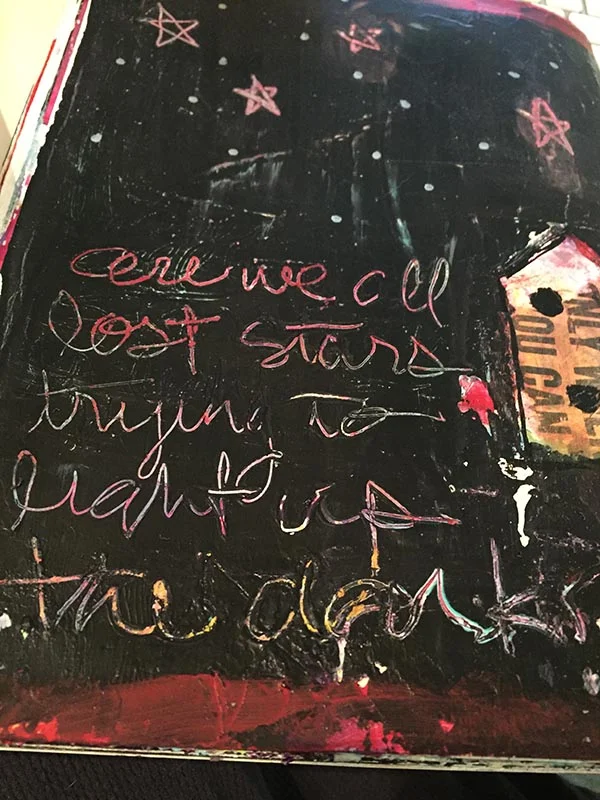 are we all
lost stars
trying to
light up
the dark
OU CAN